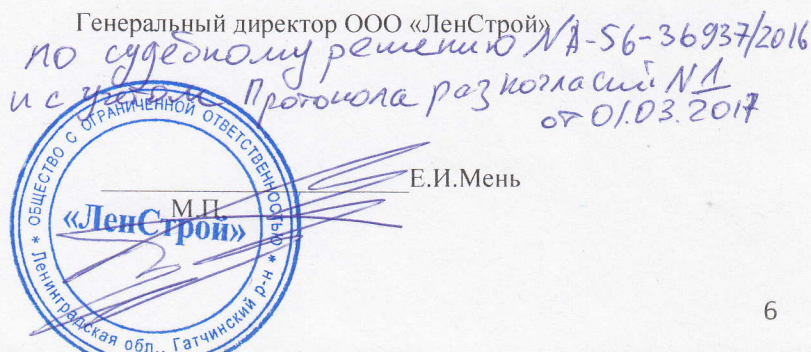 Генеральный директор ООО «ЛенСтрой»
по судебному решению N А-56-36937/2016
и с учетом Протокола разногласий N1
от 01.03.2017
Е.И.Мень
М.П.
ОБЩЕСТВО С ОГРАНИЧЕННОЙ ОТВЕТСТВЕННОСТЬЮ
«ЛенСтрой»
* Ленинградская обл., Гатчинский р-н *
6